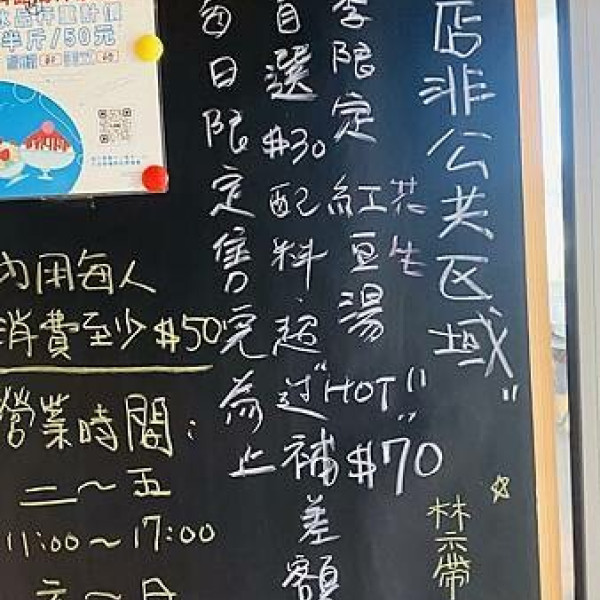 店非公共区域"
季限定 紅豆湯 "HOT" $70
花生
自選$30配料超過補差額
每日限定售完為止
水晶秤重計價
半斤/50元
內用每人
消費至少$50
營業時間:
二～五
11:00～17:00
六～日
禁帶